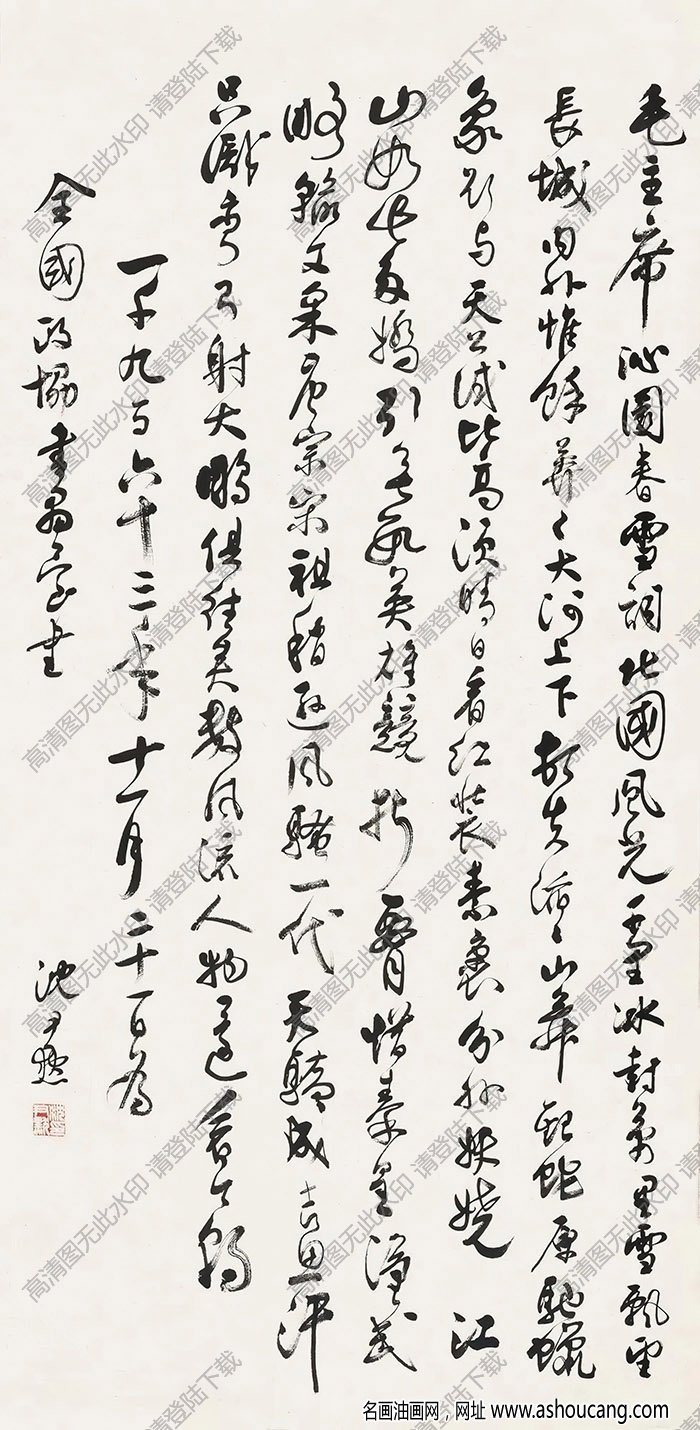 毛主席沁園春雪詞北國風光千里冰封萬里雪飄望
長城內外惟餘莽〻大河上下頓失滔〻山舞銀蛇原馳蠟
象欲與天公試比高須晴日看紅裝素裹分外妖嬈 江
山如此多嬌引無數英雄競折腰惜秦皇漢武
略輸文采唐宗宋祖稍遜風騷一代天驕成吉思汗
只識彎弓射大鵰俱往矣數風流人物還看今朝
一千九百六十三年十一月二十一日為
全國政協書畫室書
沈尹默
高清图无此水印 请登陆下载
名画油画网，网址 www.ashoucang.com